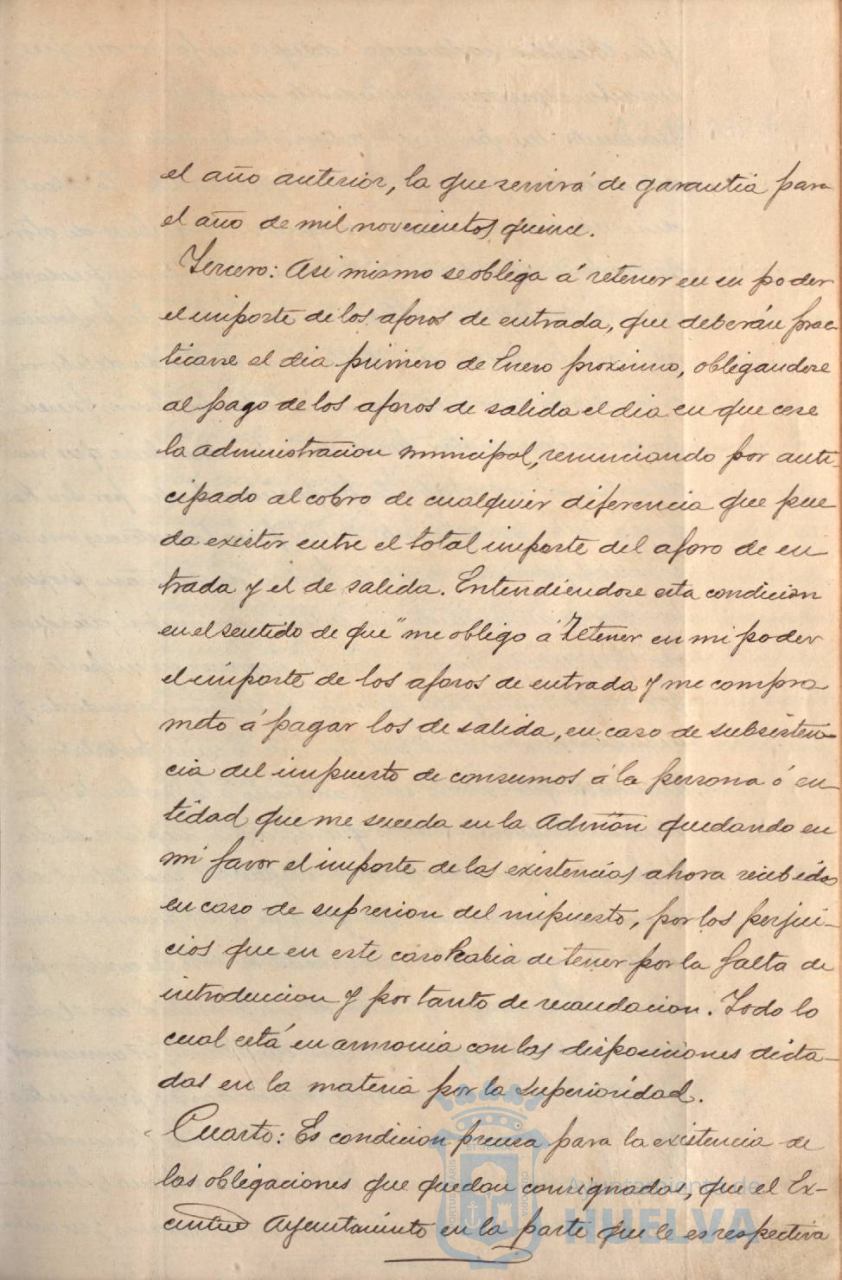 el año anterior, la que servirá de garantia para
el año de mil novecientos quince.
Tercero: Asi mismo se obliga á retener en su poder
el importe de los aforos de entrada, que deberán prac-
ticarse el dia primero de Enero proximo, obligandose
al pago de los aforos de salida el dia en que cese
la administracion municipal, renunciando por anti-
cipado al cobro de cualquier diferencia que pue
da existir entre el total importe del aforo de en
trada y el de salida. Entendiendose esta condicion
en el sentido de que "me obligo á retener en mi poder
el importe de los aforos de entrada y me compro
meto á pagar los de salida, en caso de subsisten-
cia del impuesto de consumos á la persona ó en
tidad que me suceda en la Admón quedando en
mi favor el importe de las existencias ahora recibidas
en caso de supresion del impuesto, por los perjui-
cios que en este caso habia de tener por la falta de
introduccion y por tanto de recaudacion. Todo lo
cual está en armonia con las disposiciones dicta-
das en la materia por la Superioridad.
Cuarto: Es condicion precisa para la existencia de
las obligaciones que quedan consignadas, que el Ex-
Ayuntamiento en la parte que le es respectiva
Ayuntamiento de
HUELVA